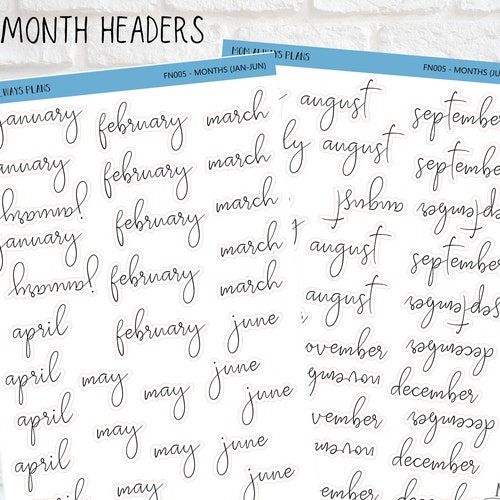 MONTH HEADERS
LWAYS PLANS FN005 - MONTHS (JAN-JUN)
january february march
january february march
january february march
january march
january february march
april february june
april may may june
june
april may may june
april may june
MOM ALWAYS PLANS FN005 - MONTHS (JU
august september
ly august september
august september
august september
august september
ovember december
novem december
vember december
novem december
december